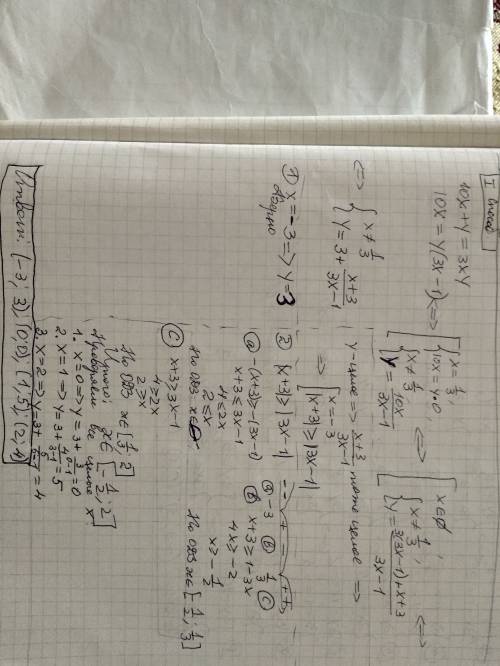 I способ
10x + y = 3xy
10x = y(3x-1) <=> [ { x = 1/3, 10x = y·0, { x ≠ 1/3, y = 10x/(3x-1) <=> [ x ∈ ∅, { x ≠ 1/3, y = (3(3x-1)+x+3)/(3x-1) <=>
<=> { x ≠ 1/3, y = 3 + (x+3)/(3x-1)
y - целое => (x+3)/(3x-1) тоже целое =>
=> [ x = -3, |x+3| ≥ |3x-1|
① x = -3 => y = 3
② |x+3| ≥ |3x-1|
-3 1/3
ⓐ -(x+3) ≥ -(3x-1)
x+3 ≤ 3x-1
4 ≤ 2x
2 ≤ x
По ОДЗ x ∈ ∅
ⓑ x+3 ≥ 1-3x
4x ≥ -2
x ≥ -1/2
По ОДЗ x ∈ [-1/2; 1/3]
ⓒ x+3 ≥ 3x-1
4 ≥ 2x
2 ≥ x
По ОДЗ x ∈ [1/3; 2]
Итого: x ∈ [-1/2; 2]
Проверяем все целые x:
1. x = 0 => y = 3 + 3/(0-1) = 0
2. x = 1 => y = 3 + 4/(3-1) = 5
3. x = 2 => y = 3 + 5/(6-1) = 4
Ответ: (-3; 3), (0; 0), (1; 5), (2; 4)